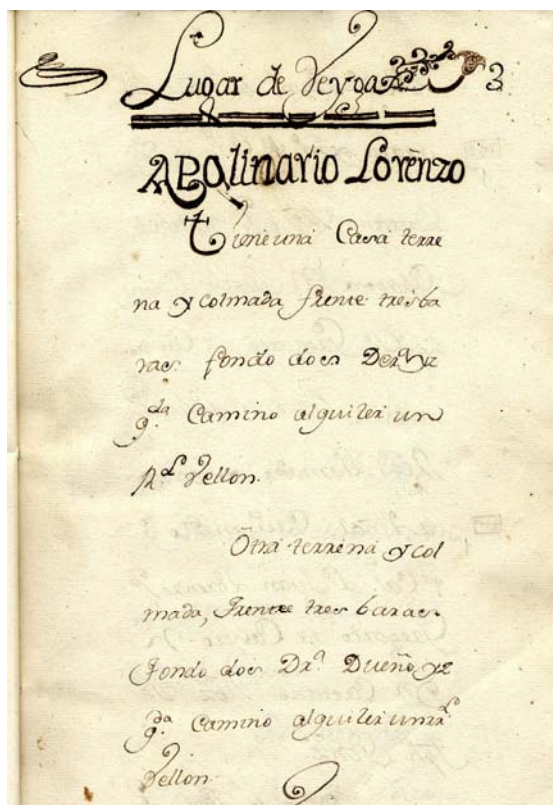 Lugar de Veyga 3
Apolinario Lorenzo
Tiene una Casa terre
na y colmada frente tres ba
raes fondo does Dera yz
qda Camino alquiler un
Rl Vellon.
Otra terrena y col
mada, Frente tres baraes
Fondo does Dra Dueño yz
qda Camino alquiler un rl
Vellon.